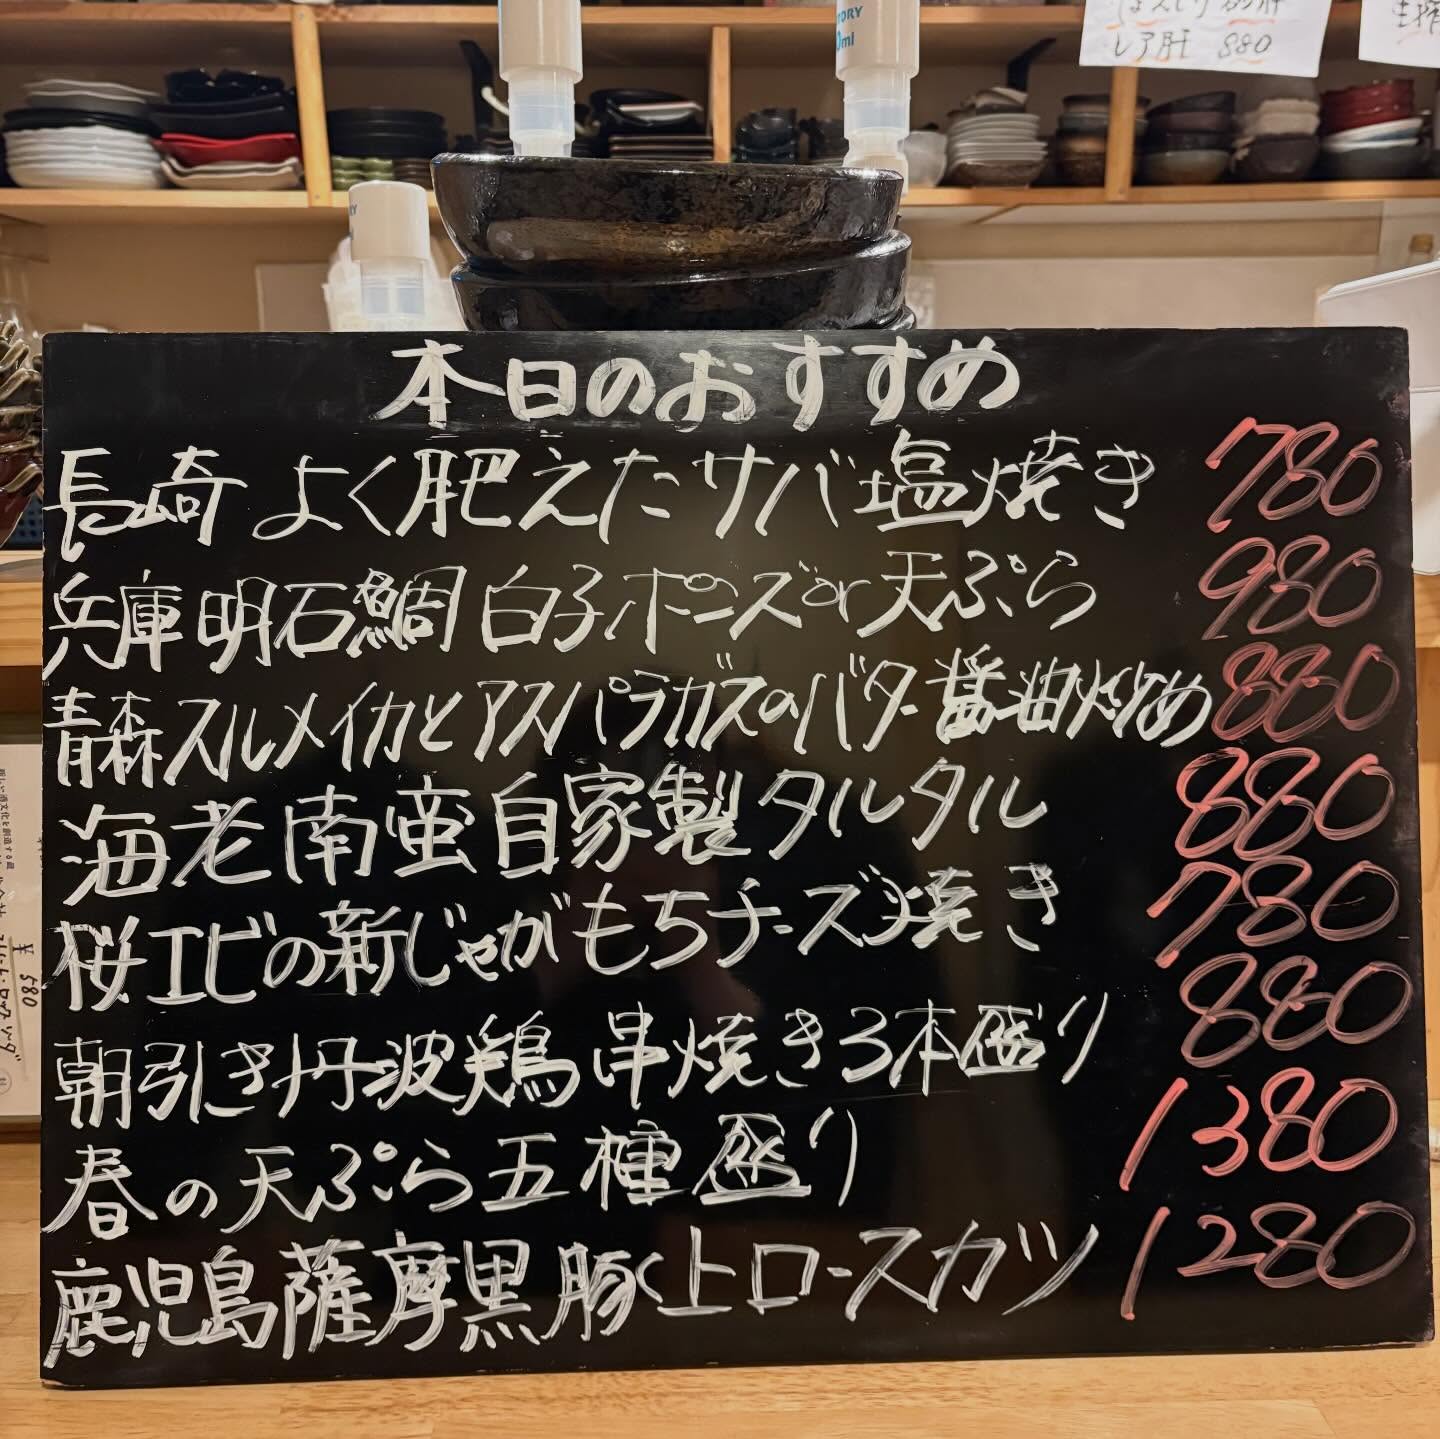 レア肝 880
本日のおすすめ
長崎 よく肥えたサバ塩焼き 780
兵庫 明石鯛 白子ポン酢or天ぷら 980
青森スルメイカとアスパラガスのバター醤油炒め 880
海老南蛮自家製タルタル 880
桜エビの新じゃがもちチーズ焼き 780
朝引き丹波鶏 串焼き3本盛り 880
春の天ぷら五種盛り 1380
鹿児島薩摩黒豚上ロースカツ 1280
¥580